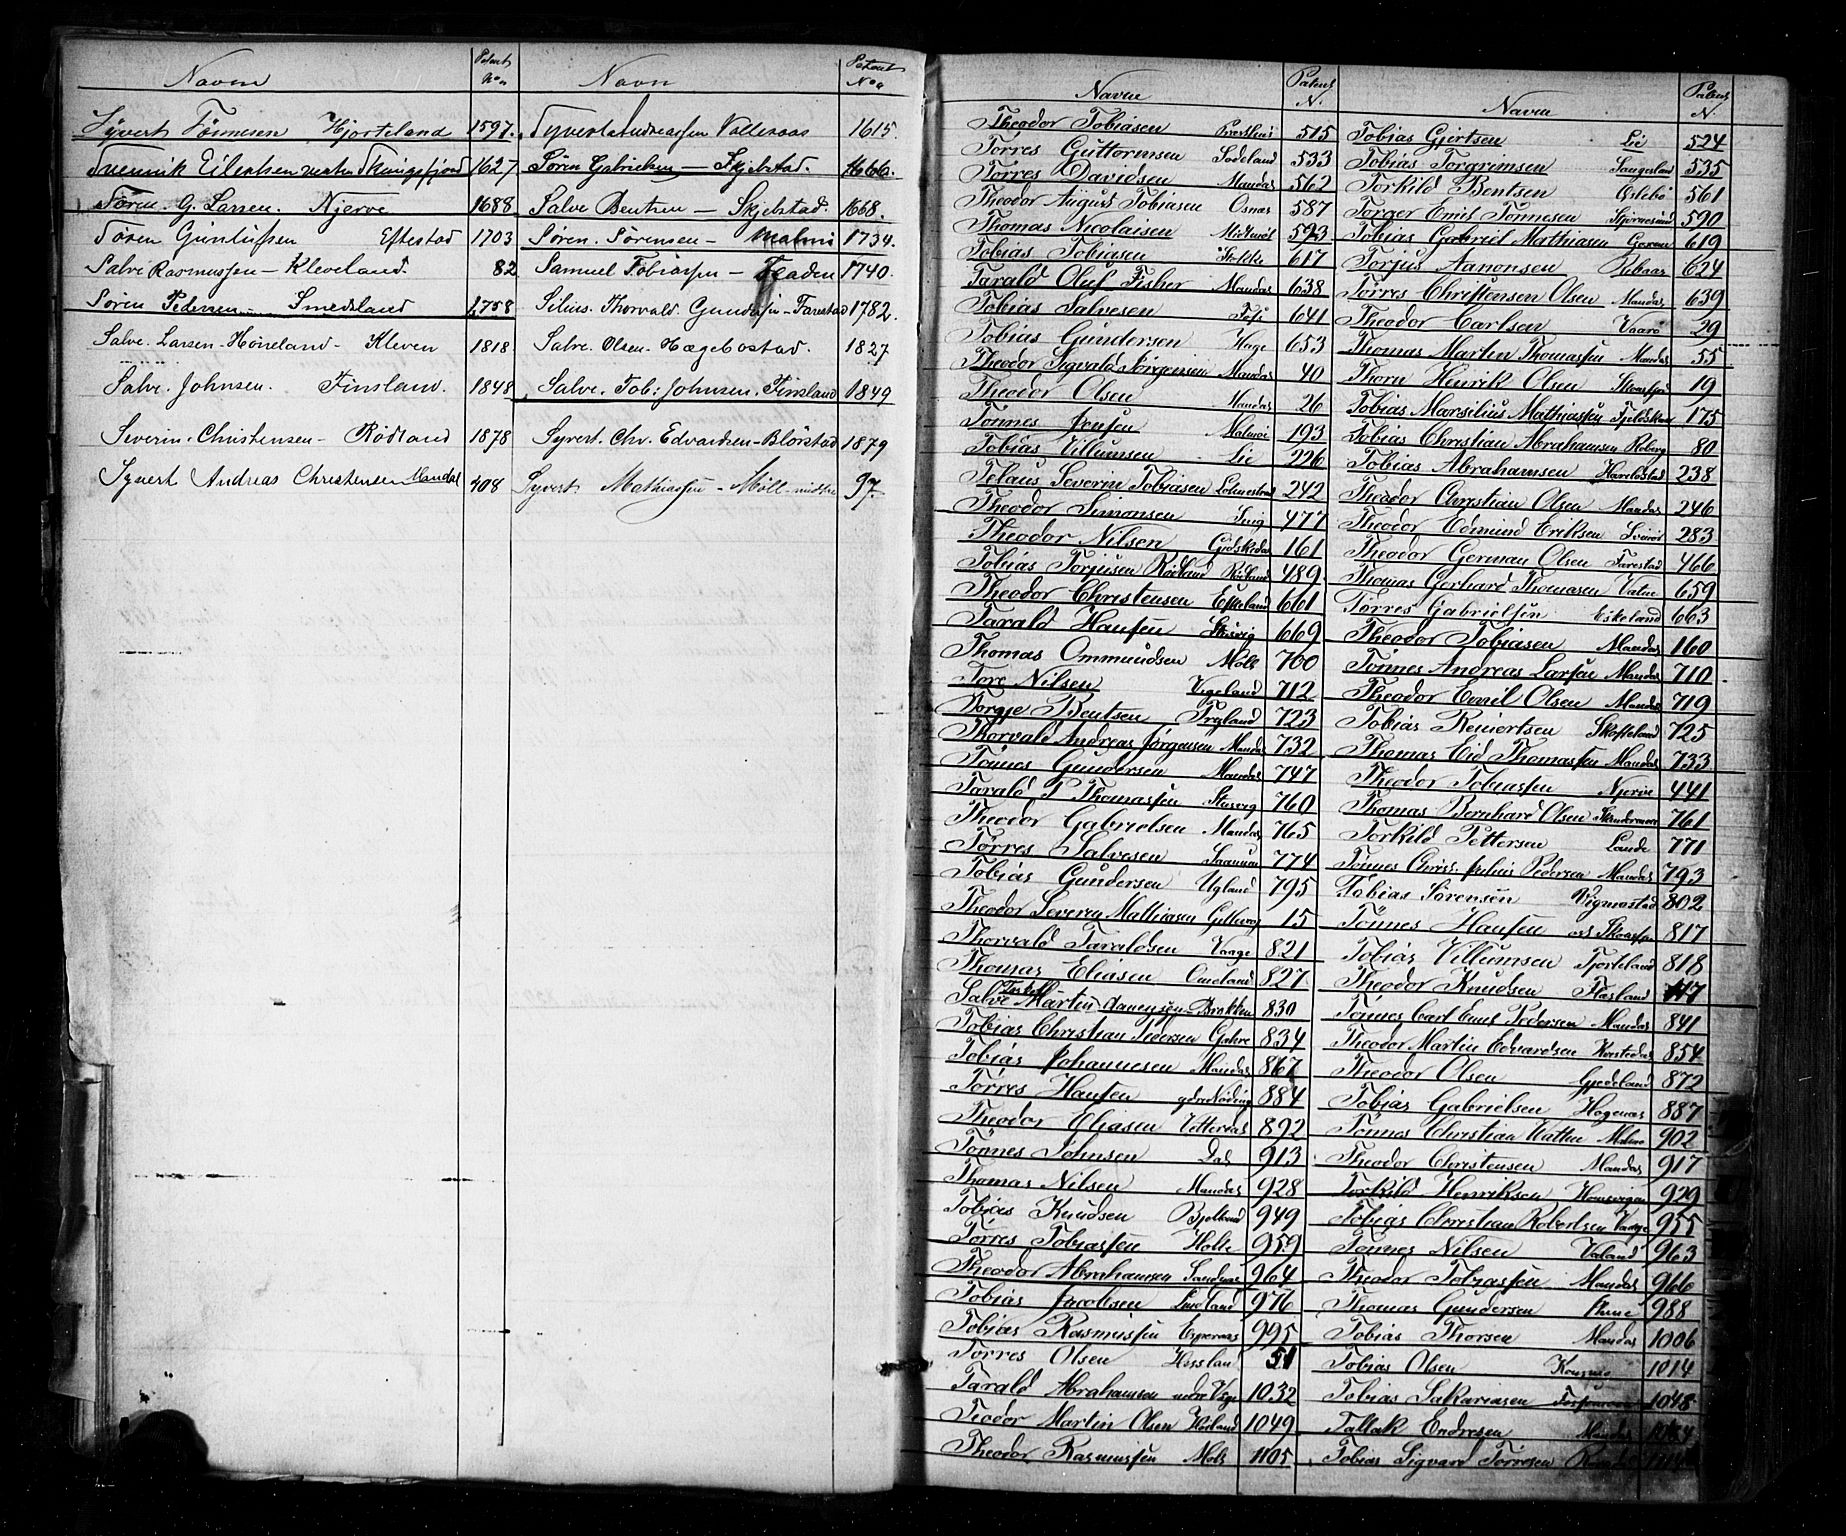 Navn Patent No
Syvert Tönnesen Hjorteland 1597.
Svennik Eilertsen 1627
Sören G. Larsen. Njerve 1688
Sören Gunlufsen Eftestad 1703
Salve Rasmussen - Kleveland. 82
Sören Pedersen - Smedsland 1758
Salve. Larsen - Höneland - Kleven 1818
Salve. Johnsen. Finsland. 1848
Severin - Christensen - Rödland 1878
Syvert Andreas Christensen Mandal 408
Navn Patent No
Syvert Andreassen Valleraas 1615.
Sören Gabrielsen - Skjebstad. 1666.
Salve Bentsen - Skjelstad. 1668.
Sören. Sörensen - Malmö 1734.
Samuel Tobiassen - 1740.
Silius. Thorvald. Gundersen - Farestad 1782.
Salve. Olsen - Hægebostad. 1827
Salve. Tob: Johnsen. Finsland 1849
Syvert. Chr. Edvardsen - Blörstad 1879
Syvert Mathiassen - Möll 97
Navne Patent N.
Theodor Tobiasen 515
Torres Guttormsen Sodeland 533
Torres Davidsen Mandal 562
Theodor August Tobiasen Osnæs 587
Thomas Nicolaisen 593
Tobias Tobiasen Stokke 617
Tarald Oluf Fisher Mandal 638
Tobias Salvesen Foss 641
Tobias Gundersen Hage 653
Theodor Sigvald Jörgensen Mandal 40
Theodor Olsen Mandal 26
Tönnes Jensen Malmö 193
Tobias Villumsen Lie 226
Telaus Severin Tobiasen 242
Theodor Simonsen 477
Theodor Nilsen 161
Tobias Torjusen Rödland Rödland 489
Theodor Christensen Eskeland 661
Tarald Hansen Stusvig 669
Thomas Ommundsen Möll 700
Tore Nilsen Vigeland 712
Torgje Bentsen Tryland 723
Thorvald Andreas Jörgensen Mandal 732
Tönnes Gundersen Mandal 747
Tarald P Thomassen Stusvig 760
Theodor Gabrielsen Mandal 765
Törres Salvesen 774
Tobias Gundersen Ugland 795
Theodor Severin Mathiasen 15
Thorvald Taraldsen Vaage 821
Thomas Eliasen Omeland 827
Salve Martin Aanensen - Brekken 830
Tobias Christian Pedersen 834
Tobias Johannesen Mandal 867
Törres Hansen 884
Theodor Eliasen 892
Tönnes Johnsen Dal 913
Thomas Nilsen Mandal 928
Tobias Knudsen Bjelland 949
Törres Tobiassen Holte 959
Theodor Abrahamsen Sandnæs 964
Tobias Jacobsen 976
Tobias Rasmussen 995
Torres Olsen 51
Tarald Abrahamsen 1032
Teodor Martin Olsen 1049
Theodor Rasmussen Möll 1105
Navne Patent N.
Tobias Gjertsen Lie 524
Tobias Torgrimsen 535
Torkild Bentsen 561
Torger Emil Tönnesen 590
Tobias Gabriel Mathiasen 619
Torjus Aanonsen 624
Törres Christensen Olsen Mandal 639
Theodor Carlsen 29
Thomas Martin Thomassen Mandal 55
Thorn Henrik Olsen 19
Tobias Marsilius Mathiassen 175
Tobias Christian Abrahamsen 80
Tobias Abrahamsen 238
Theodor Christian Olsen Mandal 246
Theodor Edmund Eriksen 283
Theodor German Olsen Farestad 466
Thomas Gerhard Thomasen Valne 659
Törres Gabrielsen Eskeland 663
Theodor Tobiasen Mandal 160
Tönnes Andreas Larsen Mandal 710
Theodor Emil Olsen Mandal 719
Tobias Reiertsen 725
Thomas Eid Thomassen Mandal 733
Theodor Tobiassen Njerve 441
Thomas Bernhard Olsen 761
Torkild Pettersen Lande 771
Tönnes Chris: Julius Pedersen Mandal 793
Tobias Sörensen Vigmostad 802
Tönnes Hansen 817
Tobias Villumsen 818
Theodor Knudsen
Tönnes Carl Emil Pedersen Mandal 841
Theodor Martin Edvardsen 854
Theodor Olsen Gjedeland 872
Tobias Gabrielsen 887
Tönnes Christian 902
Theodor Christensen Mandal 917
Torkild Henriksen 929
Tobias Christian Robertsen 955
Tönnes Nilsen Valand 963
Theodor Tobiassen Mandal 966
Thomas Gundersen 988
Tobias Thorsen Mandal 1006
Tobias Olsen 1014
Tobias Sakariasen 1048
Tallak Endresen Mandal
Tobias Sigvard Törresen